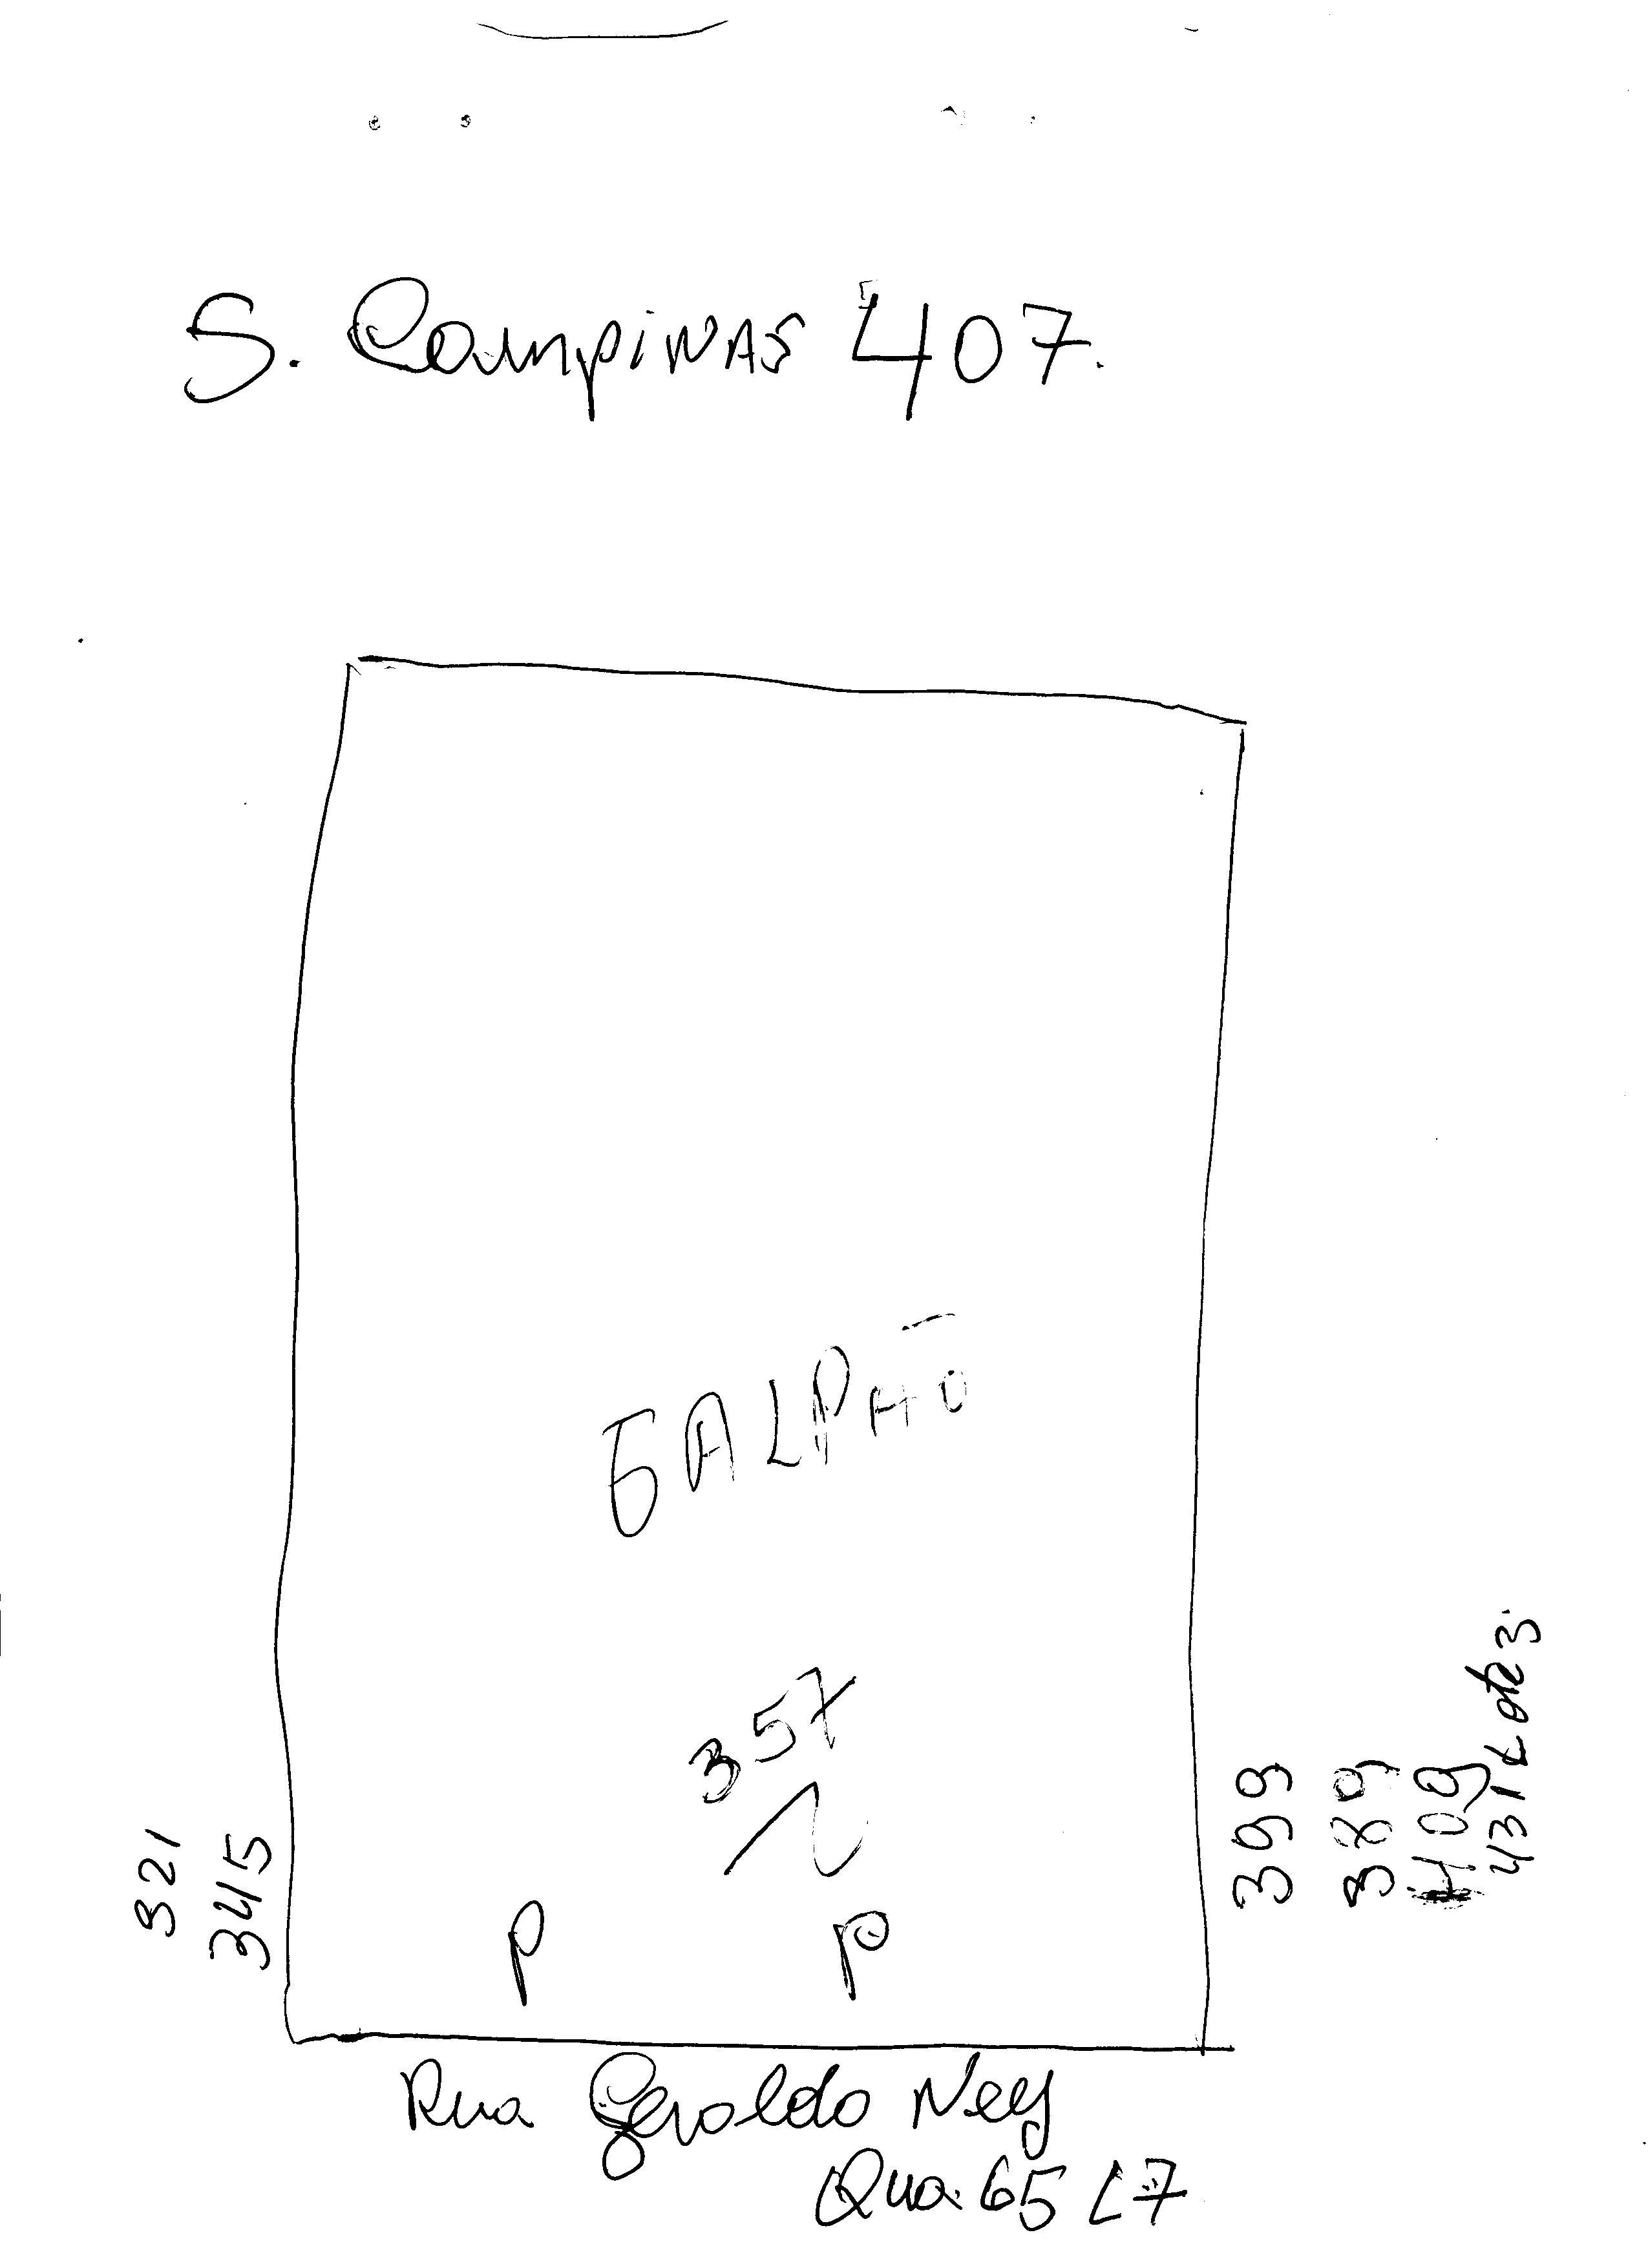 S. Campinas 407.
GALPÃO
357
P P
321
345
399
389
409
431 Lote 3
Rua Geraldo Ney
Qua. 65 L7